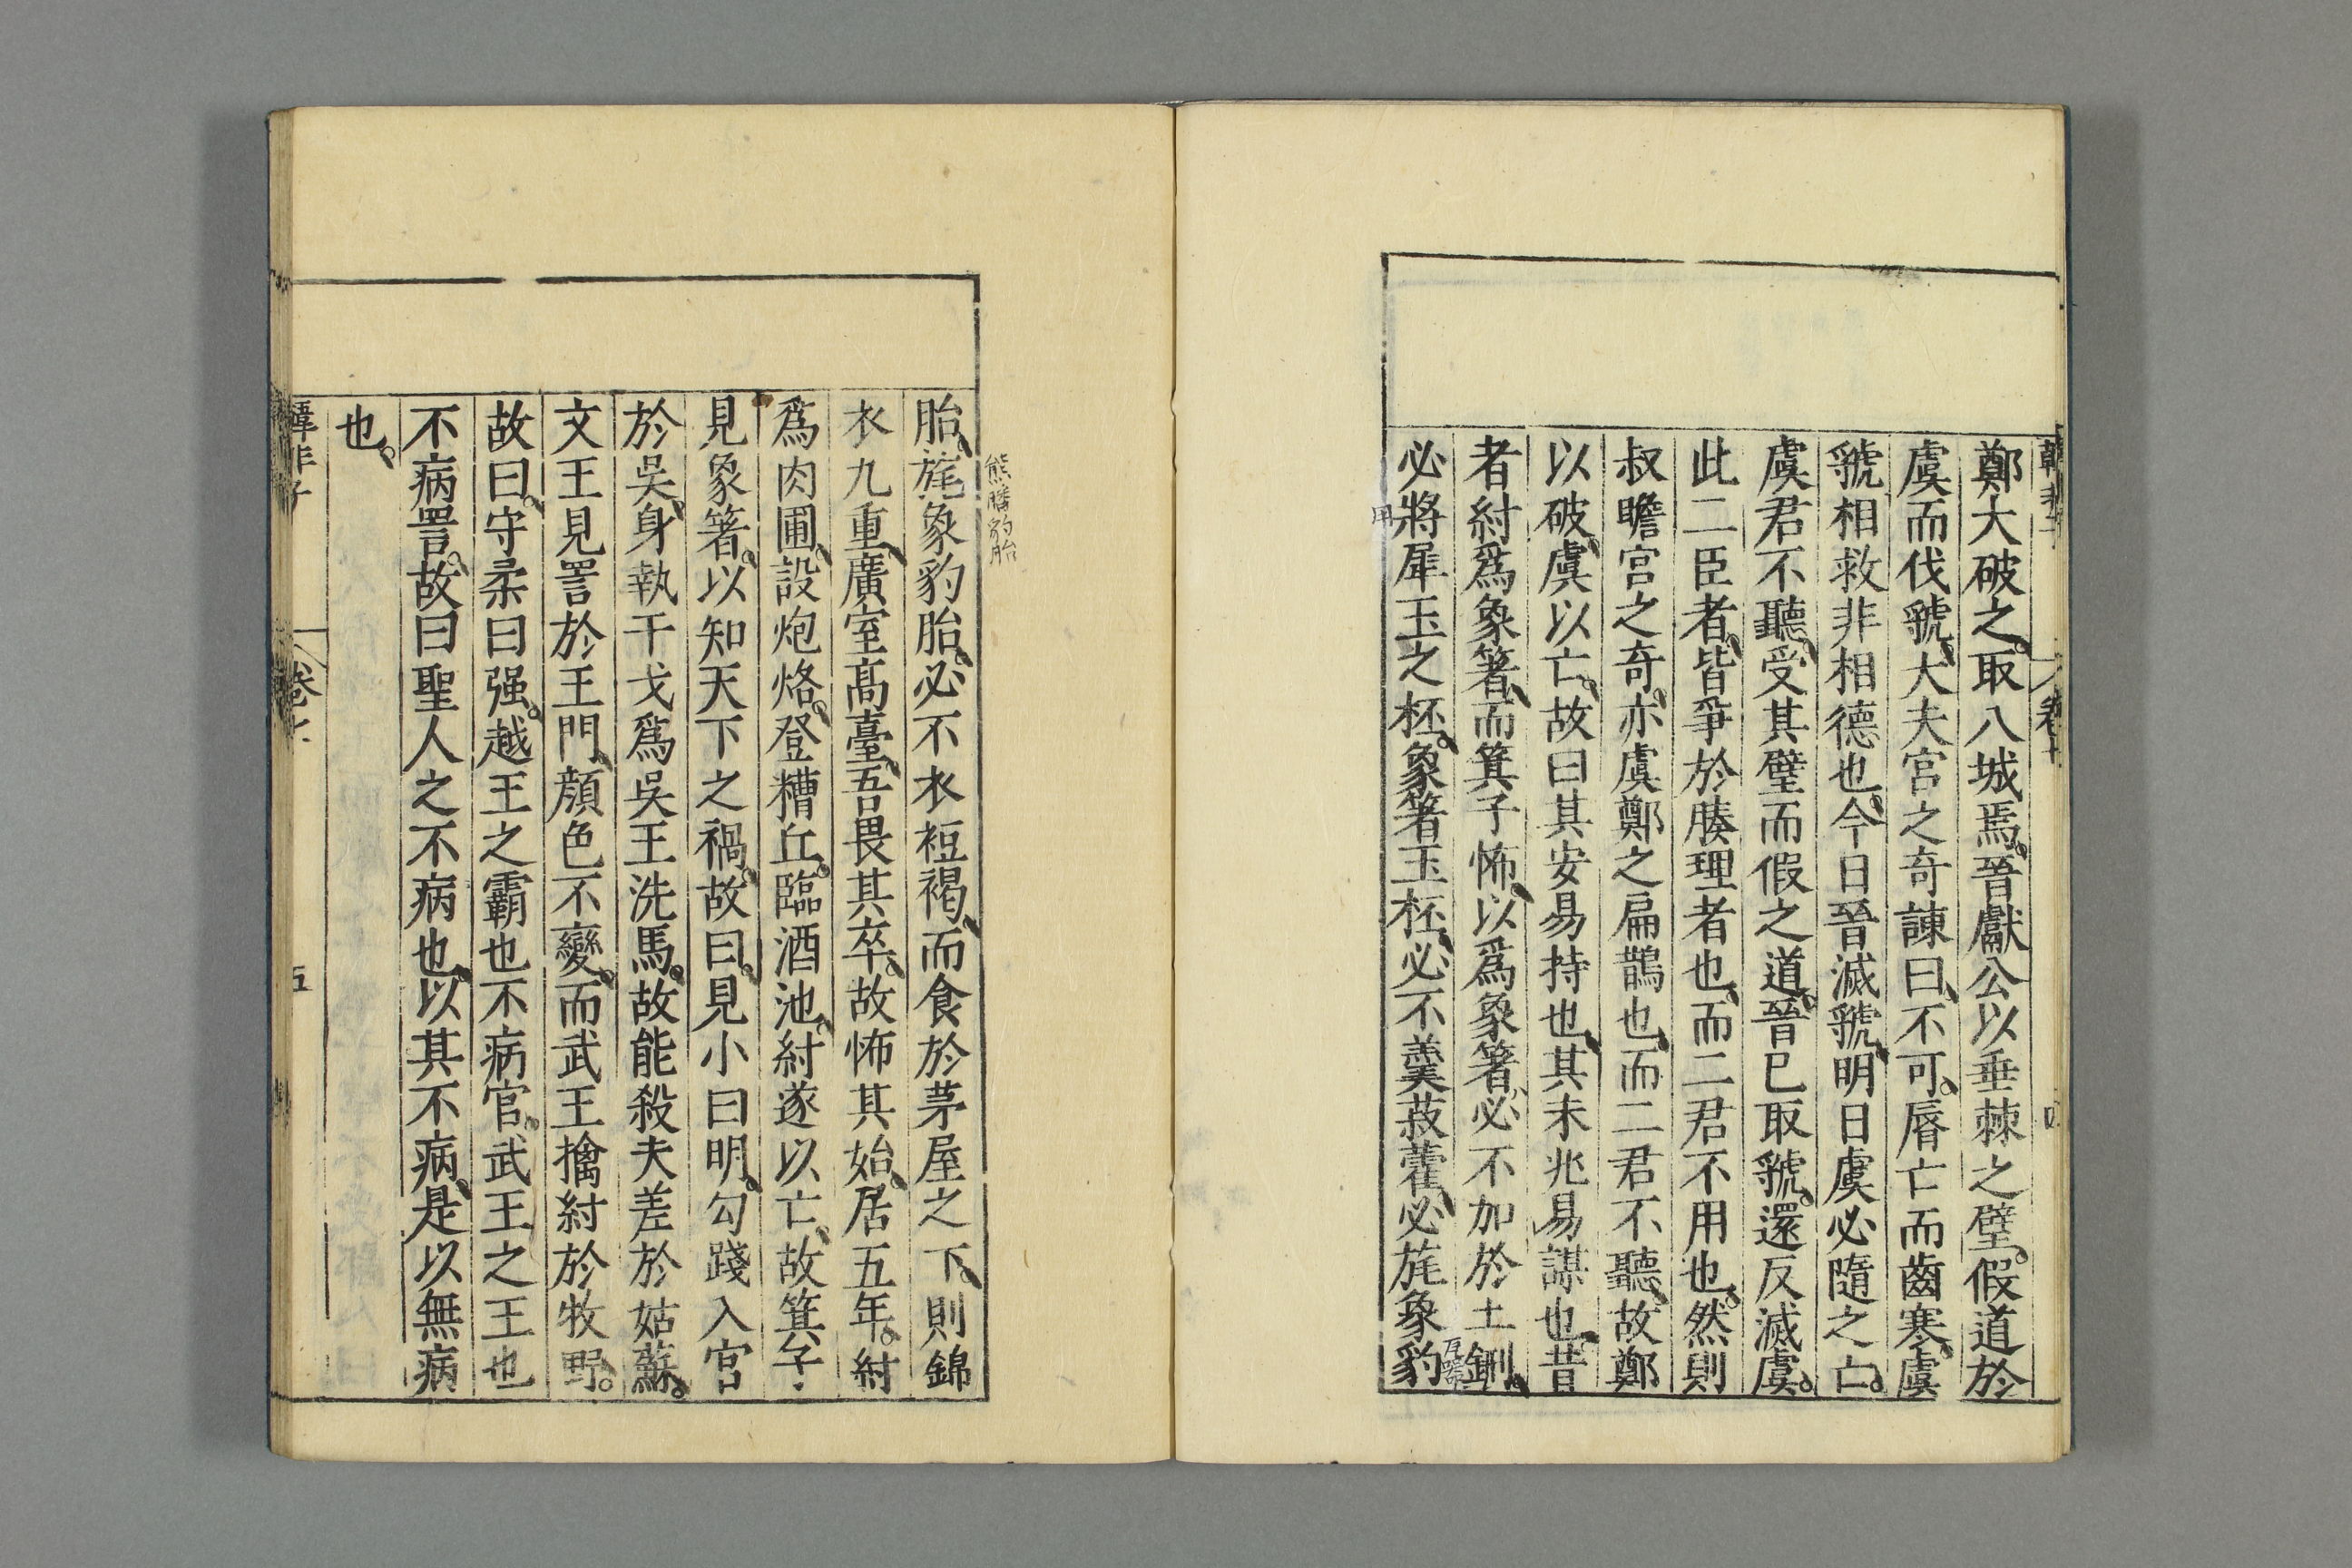 鄭大破之取八城焉晉獻公以垂棘之璧假道於
虞而伐虢大夫宮之奇諫曰不可脣亡而齒寒虞
虢相救非相德也今日晉滅虢明日虞必隨之亡
虞君不聽受其璧而假之道晉已取虢還反滅虞
此二臣者皆爭於腠理者也而二君不用也然則
叔瞻宮之奇亦虞鄭之扁鵲也而二君不聽故鄭
以破虞以亡故曰其安易持也其未兆易謀也昔
者紂爲象箸而箕子怖以爲象箸必不加於土鉶
必將犀玉之杯象箸玉杯必不羹菽藿必旄象豹
用
熊膰豹胎
胎旄象豹胎必不衣裋褐而食於茅屋之下則錦
衣九重廣室高臺吾畏其卒故怖其始居五年紂
爲肉圃設炮烙登糟丘臨酒池紂遂以亡故箕子
見象箸以知天下之禍故曰見小曰明勾踐入宮
於吳身執干戈爲吳王洗馬故能殺夫差於姑蘇
文王見詈於王門顏色不變而武王擒紂於牧野
故曰守柔曰强越王之霸也不病官武王之王也
不病詈故曰聖人之不病也以其不病是以無病
也
韓非子
卷七
五